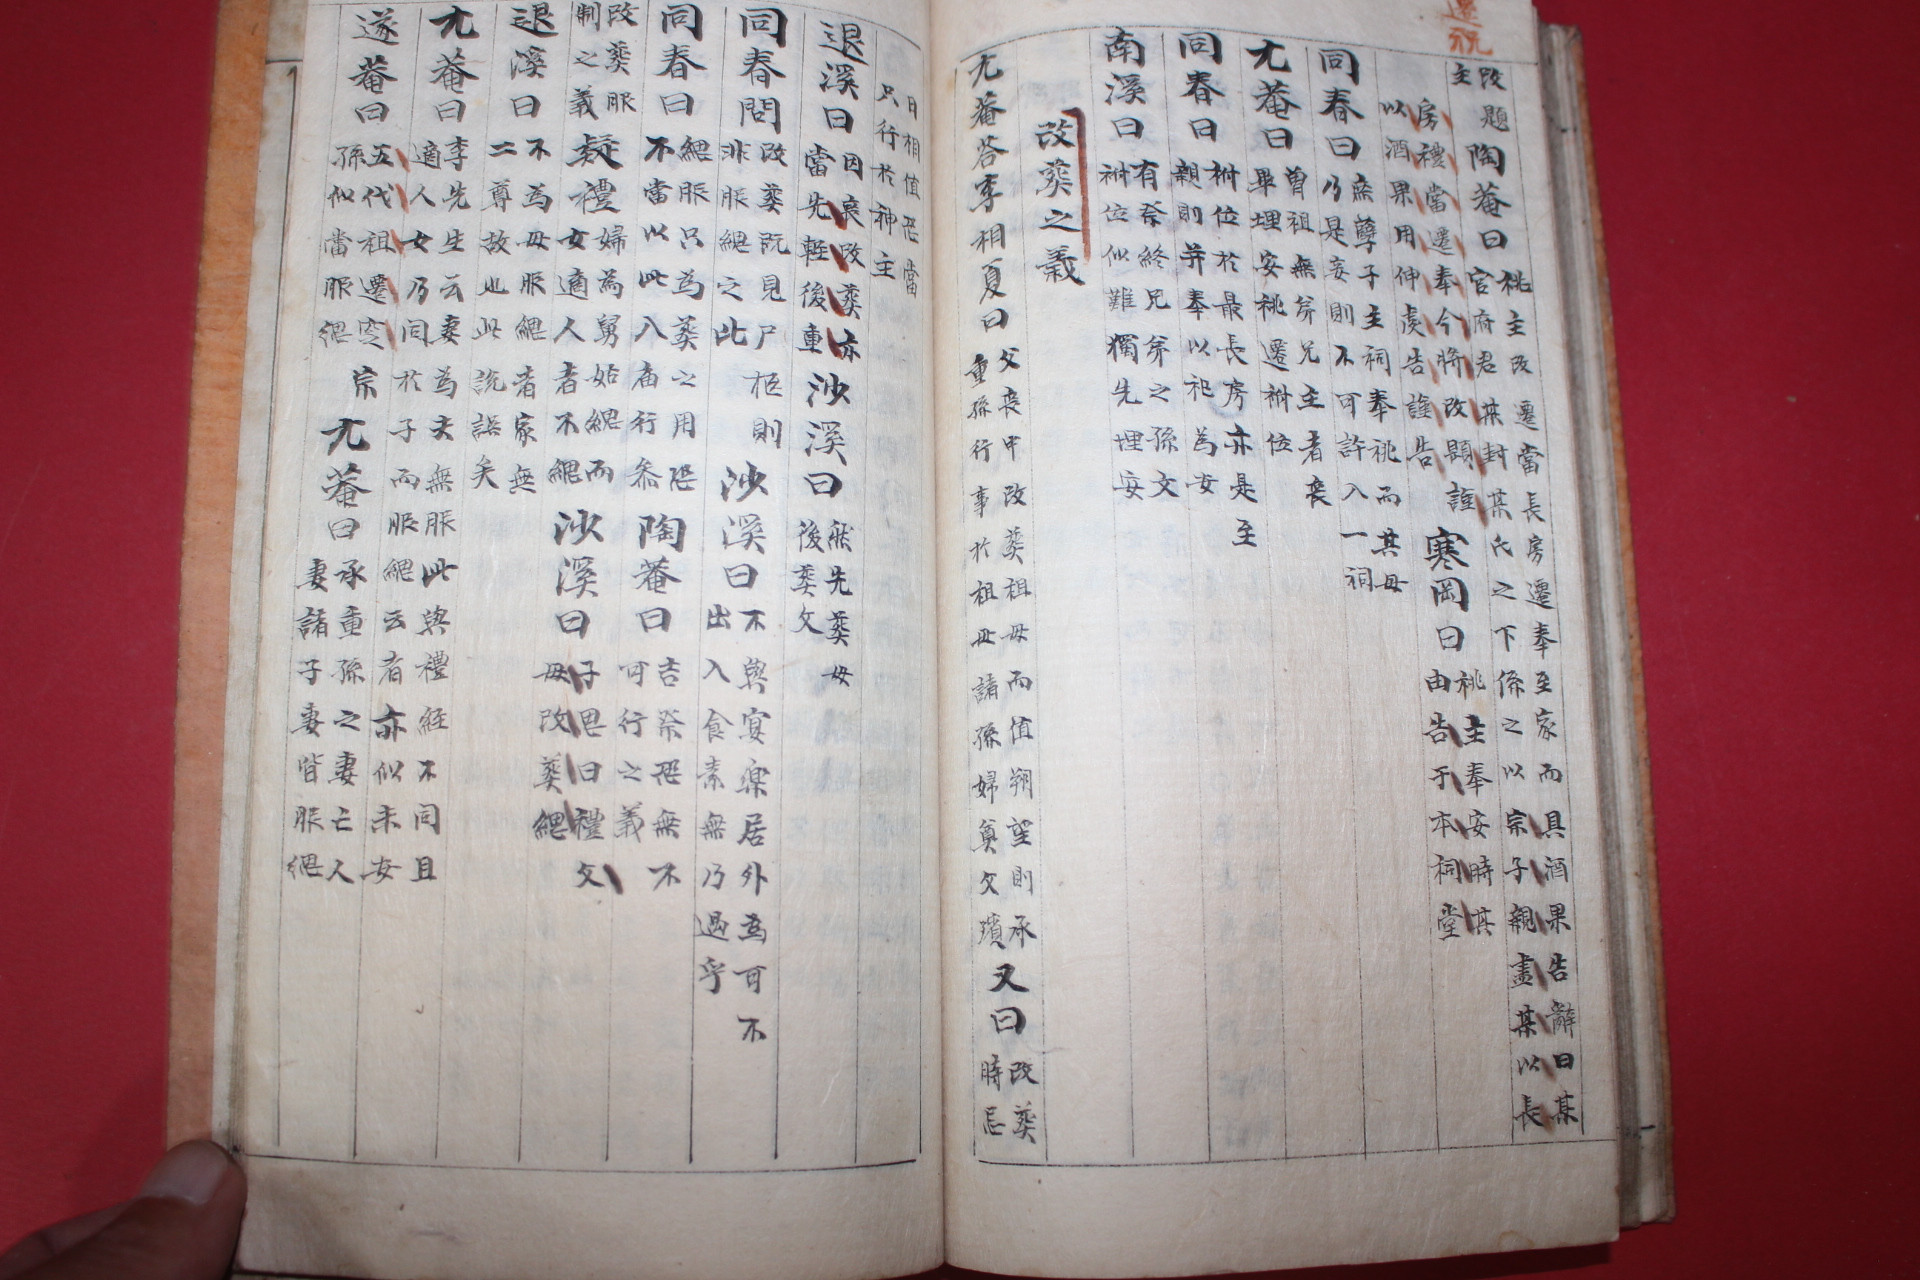 遷祝
改題
主
陶菴曰
祧主改遷當長房遷奉至家而具酒果告辭曰某
官府君某封某氏之下係之以宗子親盡某以長
房禮當遷奉今將改題謹
以酒果用伸虔告謹告
寒岡曰
祧主奉安時其
由告于本祠堂
同春曰
庶孽子主祠奉祧而其母
乃是妾則不可許入一祠
尤菴曰
曾祖無弟兄主者喪
畢埋安祧遷祔位
同春曰
祔位於最長房亦是至
親則并奉以祀為女
南溪曰
有終兄弟之孫文
祔位似難獨先埋安
改葬之義
尤菴答李相夏曰
父喪中改葬祖母而值朔望則承
重孫行事於祖母諸孫婦奠父
又曰
改葬
時忌
日相值恐當
只行於神主
退溪曰
因喪改葬亦
當先輕後重
沙溪曰
然先葬母
後葬父
同春問
改葬既見尸柩則
非服緦之此
沙溪曰
不與宴樂居外為可不
出入食素無乃過乎
同春曰
緦服只為葬之用恐
不當以此入廟行祭
陶菴曰
吉祭恐無不
可行之義
改葬服
制之義
疑禮
婦為舅姑緦而
女適人者不緦
沙溪曰
子思曰禮父
母改葬緦
退溪曰
不為母服緦者家無
二尊故也此說誤矣
尤菴曰
李先生云妻為夫無服此與禮經不同且
適人女乃同於子而服緦云者亦似未安
遂菴曰
五代祖遷窆宗
孫似當服緦
尤菴曰
承重孫之妻亡人
妻諸子妻皆服緦